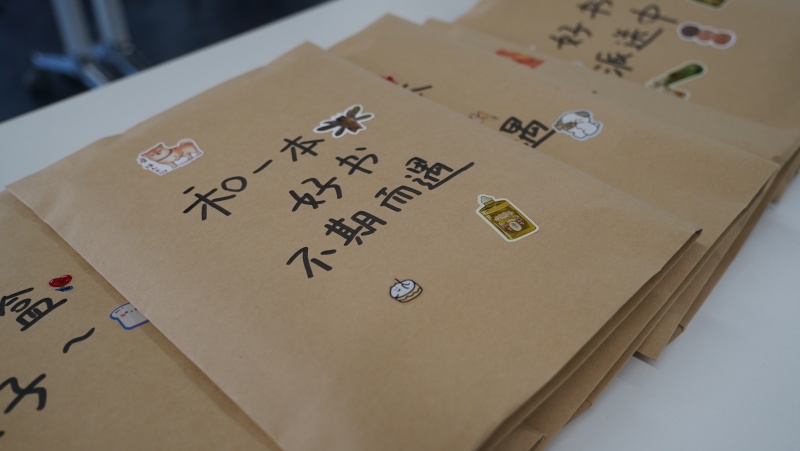 和一本
好书
不期而遇
盒
子~
好书
派送中